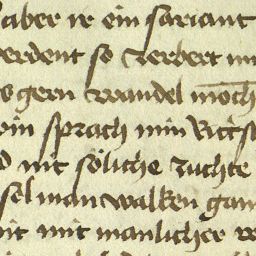 aber ir ein sariant
werdent so zerbert
s gern wandel moch
ein sprach min Ritt
nit söliche zuchte
sel man walken gan
mit manlicher